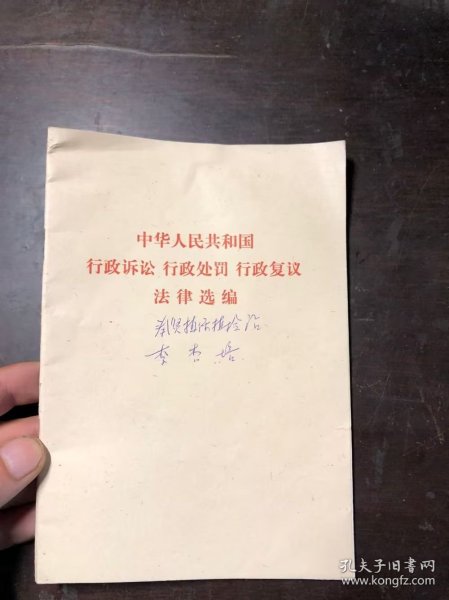 中华人民共和国
行政诉讼 行政处罚 行政复议
法律选编
奉贤植保植检站
李杏培
孔夫子旧书网
www.kongfz.com